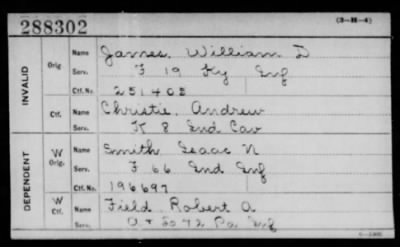 288302
(3-H-4)
INVALID
Orig
Name James, William D
Serv. F 19 Ky Inf
Ctf. No. 251408
Ctf.
Name Christie, Andrew
Serv. K 8 Ind Cav
DEPENDENT
W Orig.
Name Smith Isaac N
Serv. F 66 Ind Inf
Ctf. No. 196697
W Ctf.
Name Field, Robert A
Serv. 72 Pa Inf